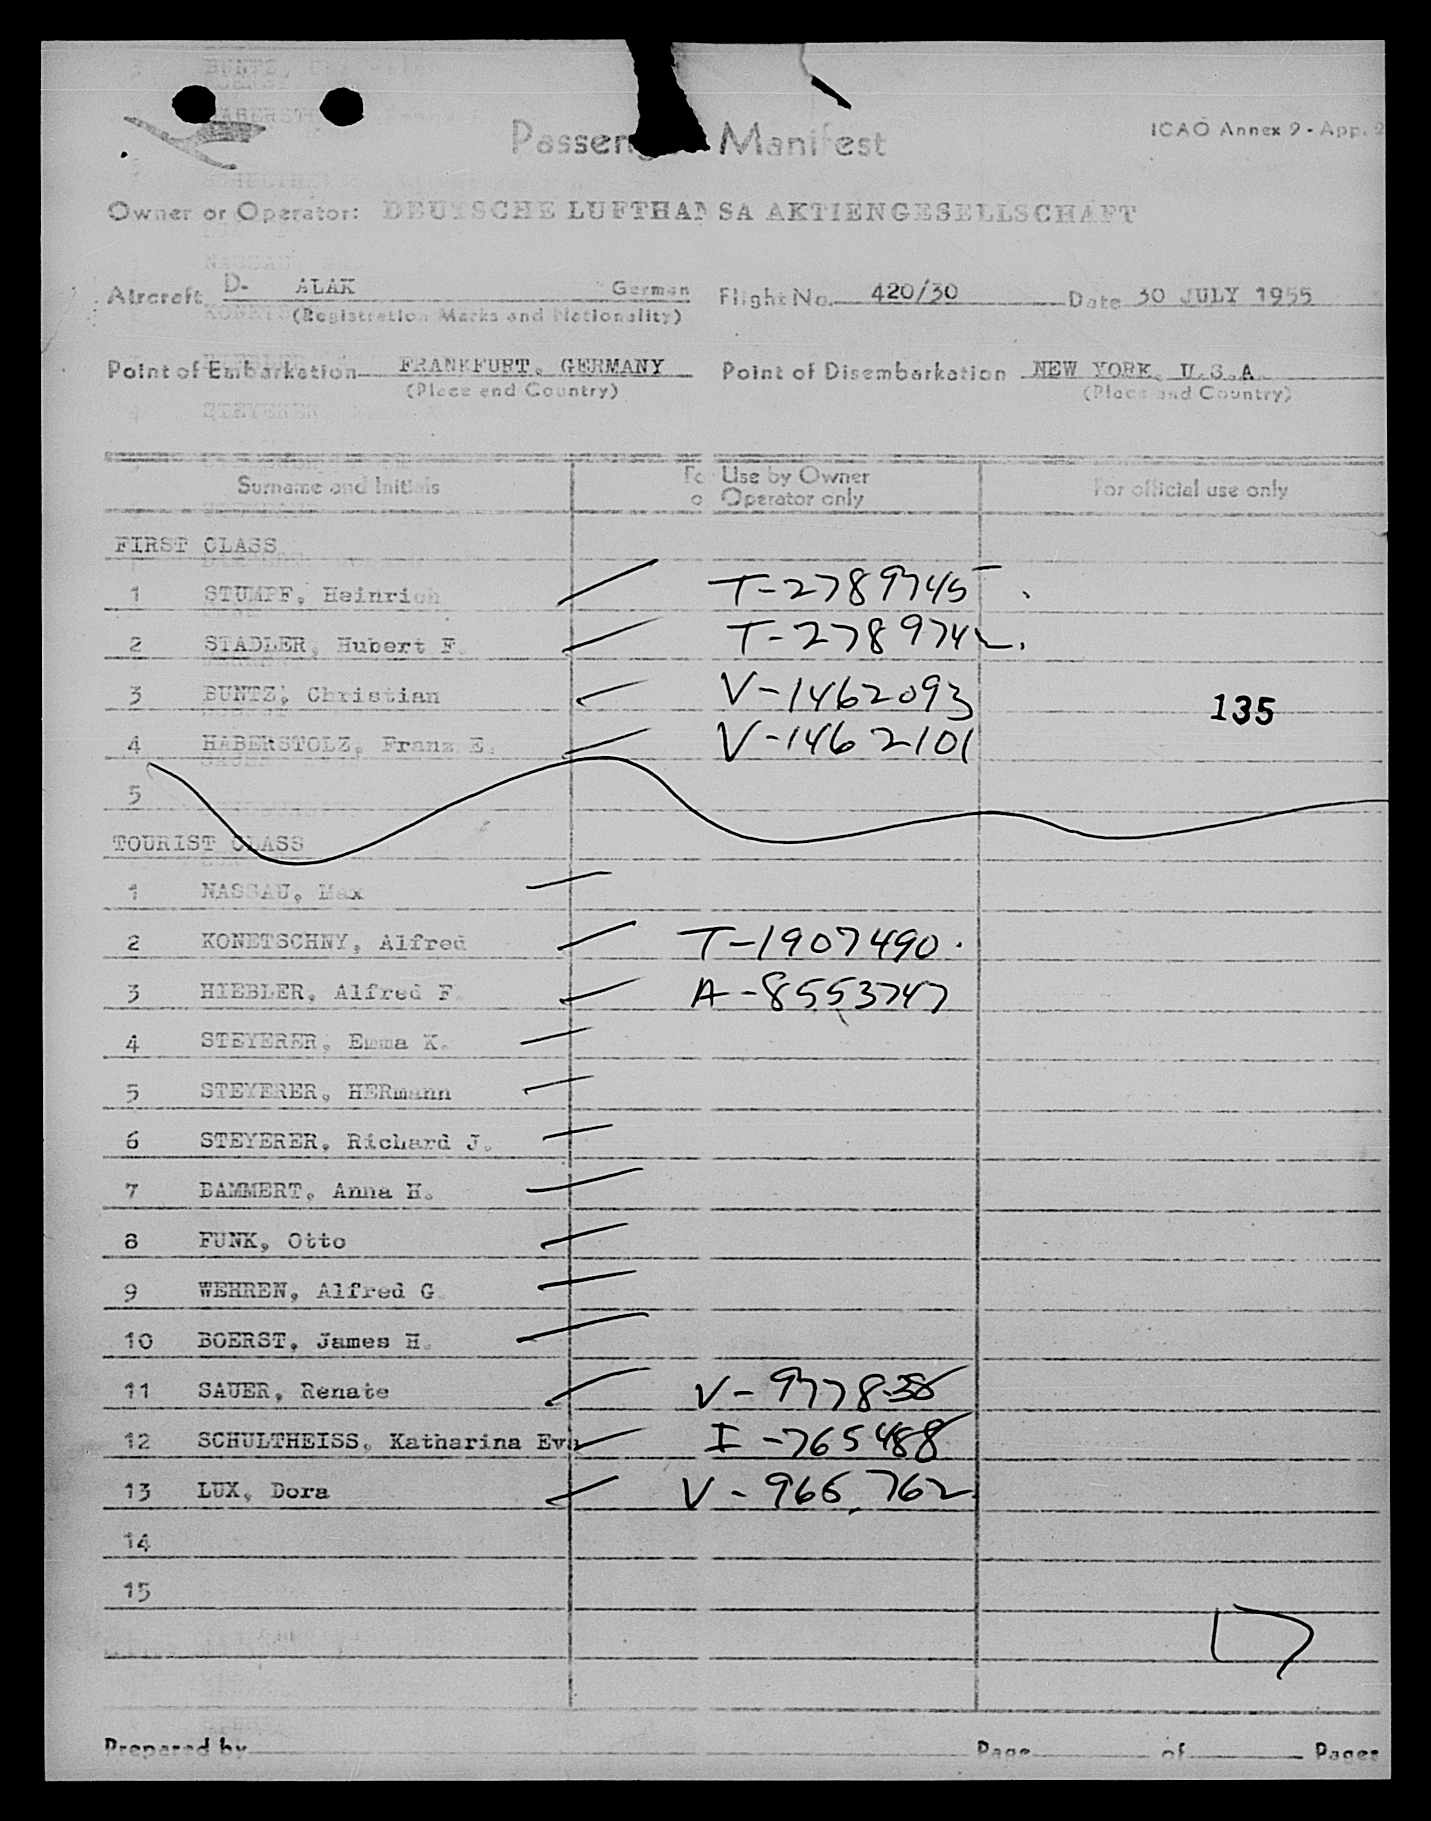 Passen Manifest
ICAO Annex 9 - App. 2
Owner or Operator: DEUTSCHE LUFTHANSA AKTIENGESELLSCHAFT
Aircraft D- ALAK German Flight No. 420/30 Date 30 JULY 1955
(Registration Marks and Nationality)
Point of Embarkation FRANKFURT, GERMANY Point of Disembarkation NEW YORK, U.S.A.
(Place and Country) (Place and Country)
Surname and Initials For Use by Owner or Operator only For official use only
FIRST CLASS
1 STUMPF, Heinrich T-2789745
2 STADLER, Hubert F. T-2789742.
3 BUNTZ, Christian V-1462093
135
4 HABERSTOLZ, Franz E. V-1462101
5
TOURIST CLASS
1 NASSAU, Max
2 KONETSCHNY, Alfred T-1907490.
3 HIEBLER, Alfred F. A-8553747
4 STEYERER, Emma K.
5 STEYERER, HERmann
6 STEYERER, Richard J.
7 BAMMERT, Anna H.
8 FUNK, Otto
9 WEHREN, Alfred G.
10 BOERST, James H.
11 SAUER, Renate V-977838
12 SCHULTHEISS, Katharina Eva I-765488
13 LUX, Dora V-966,762
14
15
17
Prepared by Page of Pages